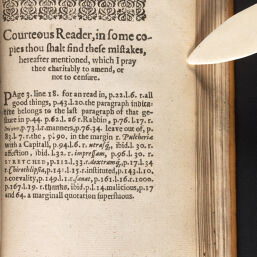 Courteous Reader, in some co-
pies thou shalt find these mistakes,
hereafter mentioned, which I pray
thee charitably to amend, or
not to censure.
PAge 3. line 18. for an read in, p.22.l.6. r. all
good things, p.43.l.20. the paragraph
belongs to the last paragraph of that ge-
sture in p.44. p.62.l.26 r. Rabbin, p.76.l.17. r.
p.73.l.r. manners, p.76.34. leave out of, p.
83.l.7. r. the, p.90. in the margin r.
with a Capitall, p.94.l.6. r. ibid. l.31. r.
affection, ibid. l.32. r. impressam, p.96.l.30. r.
STRETCHED, p.112.l.33. r. p.17.l.34
r. p.141.l.15. r. instituted, p.143.l.10.
r. corvality, p.149.l.1. r. p.161.l.16. r. 1000.
p.167.l.19. r. thanks, ibid. p.l.14. malicious, p.17
and 64. a marginall quotation superfluous.